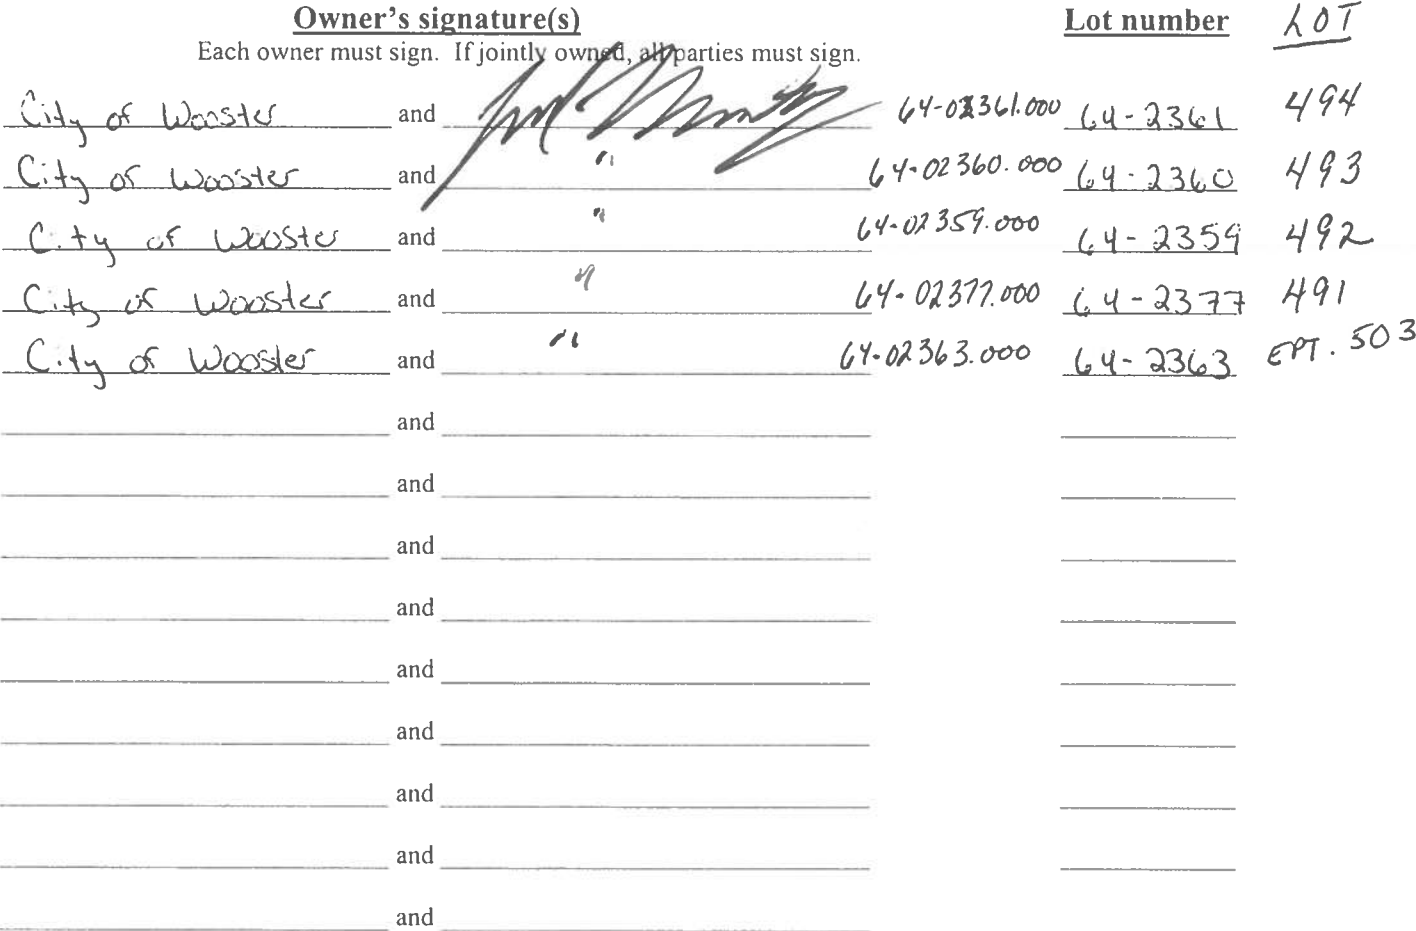 Owner's signature(s) Lot number LOT
Each owner must sign. If jointly owned, all parties must sign.
City of Wooster and 64-02361.000 64-2361 494
City of Wooster and " 64-02360.000 64-2360 493
City of Wooster and " 64-02359.000 64-2359 492
City of Wooster and " 64-02377.000 64-2377 491
City of Wooster and " 64-02363.000 64-2363 EPT. 503
and
and
and
and
and
and
and
and
and